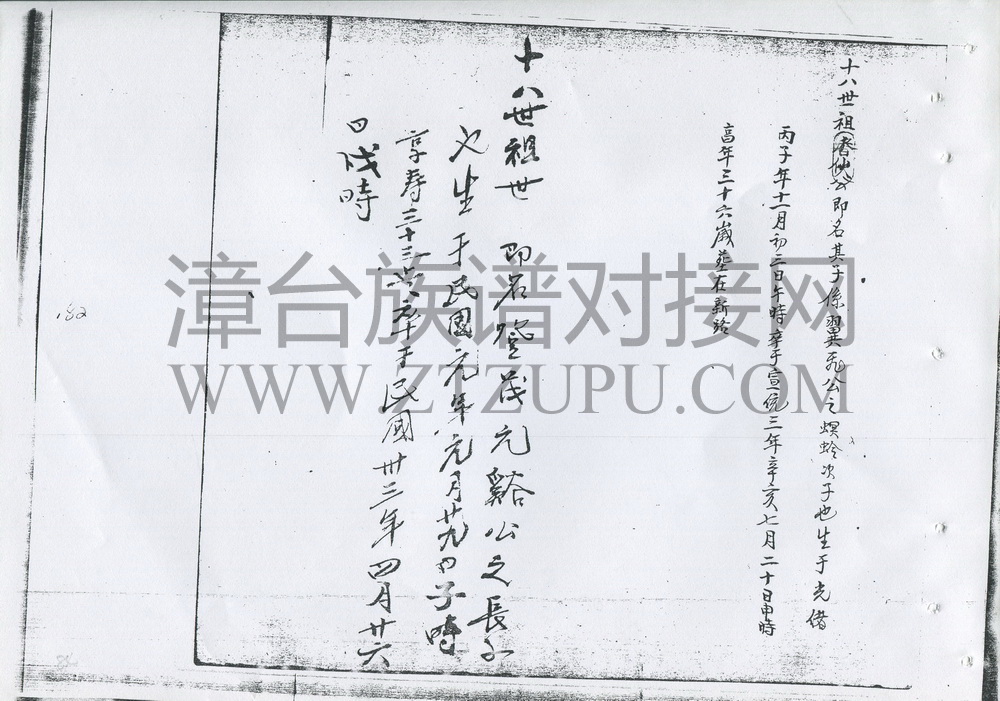 十八世祖(春　公)即名其子係翼飛公之螟蛉次子也生于光緒
丙子年十一月初三日午時卒于宣統三年辛亥七月二十日申時
高年三十六歲葬在新路
十八世祖世　即名登茂元谿公之長子
也生于民國元年元月廿九日子時
享寿三十三歲卒于民國卅三年四月廿六
日戌時
漳台族谱对接网
WWW.ZTZUPU.COM
182